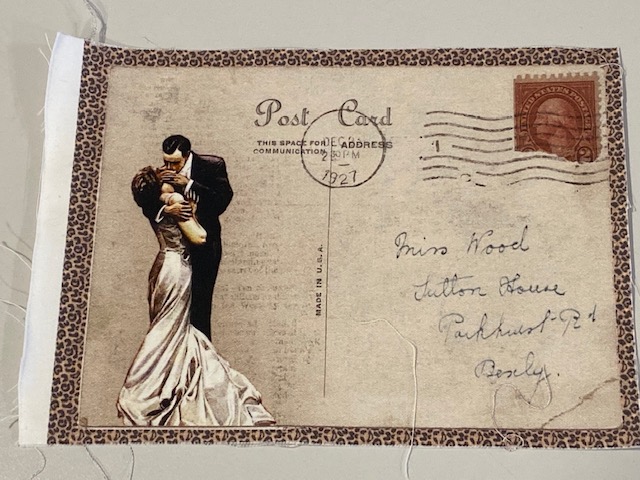 Post Card
THIS SPACE FOR
COMMUNICATION
ADDRESS
DEC
2 30 PM
1927
UNITED STATES POSTAGE
2
MADE IN U.S.A.
Miss Wood
Sutton House
Parkhurst Rd
Bexly.